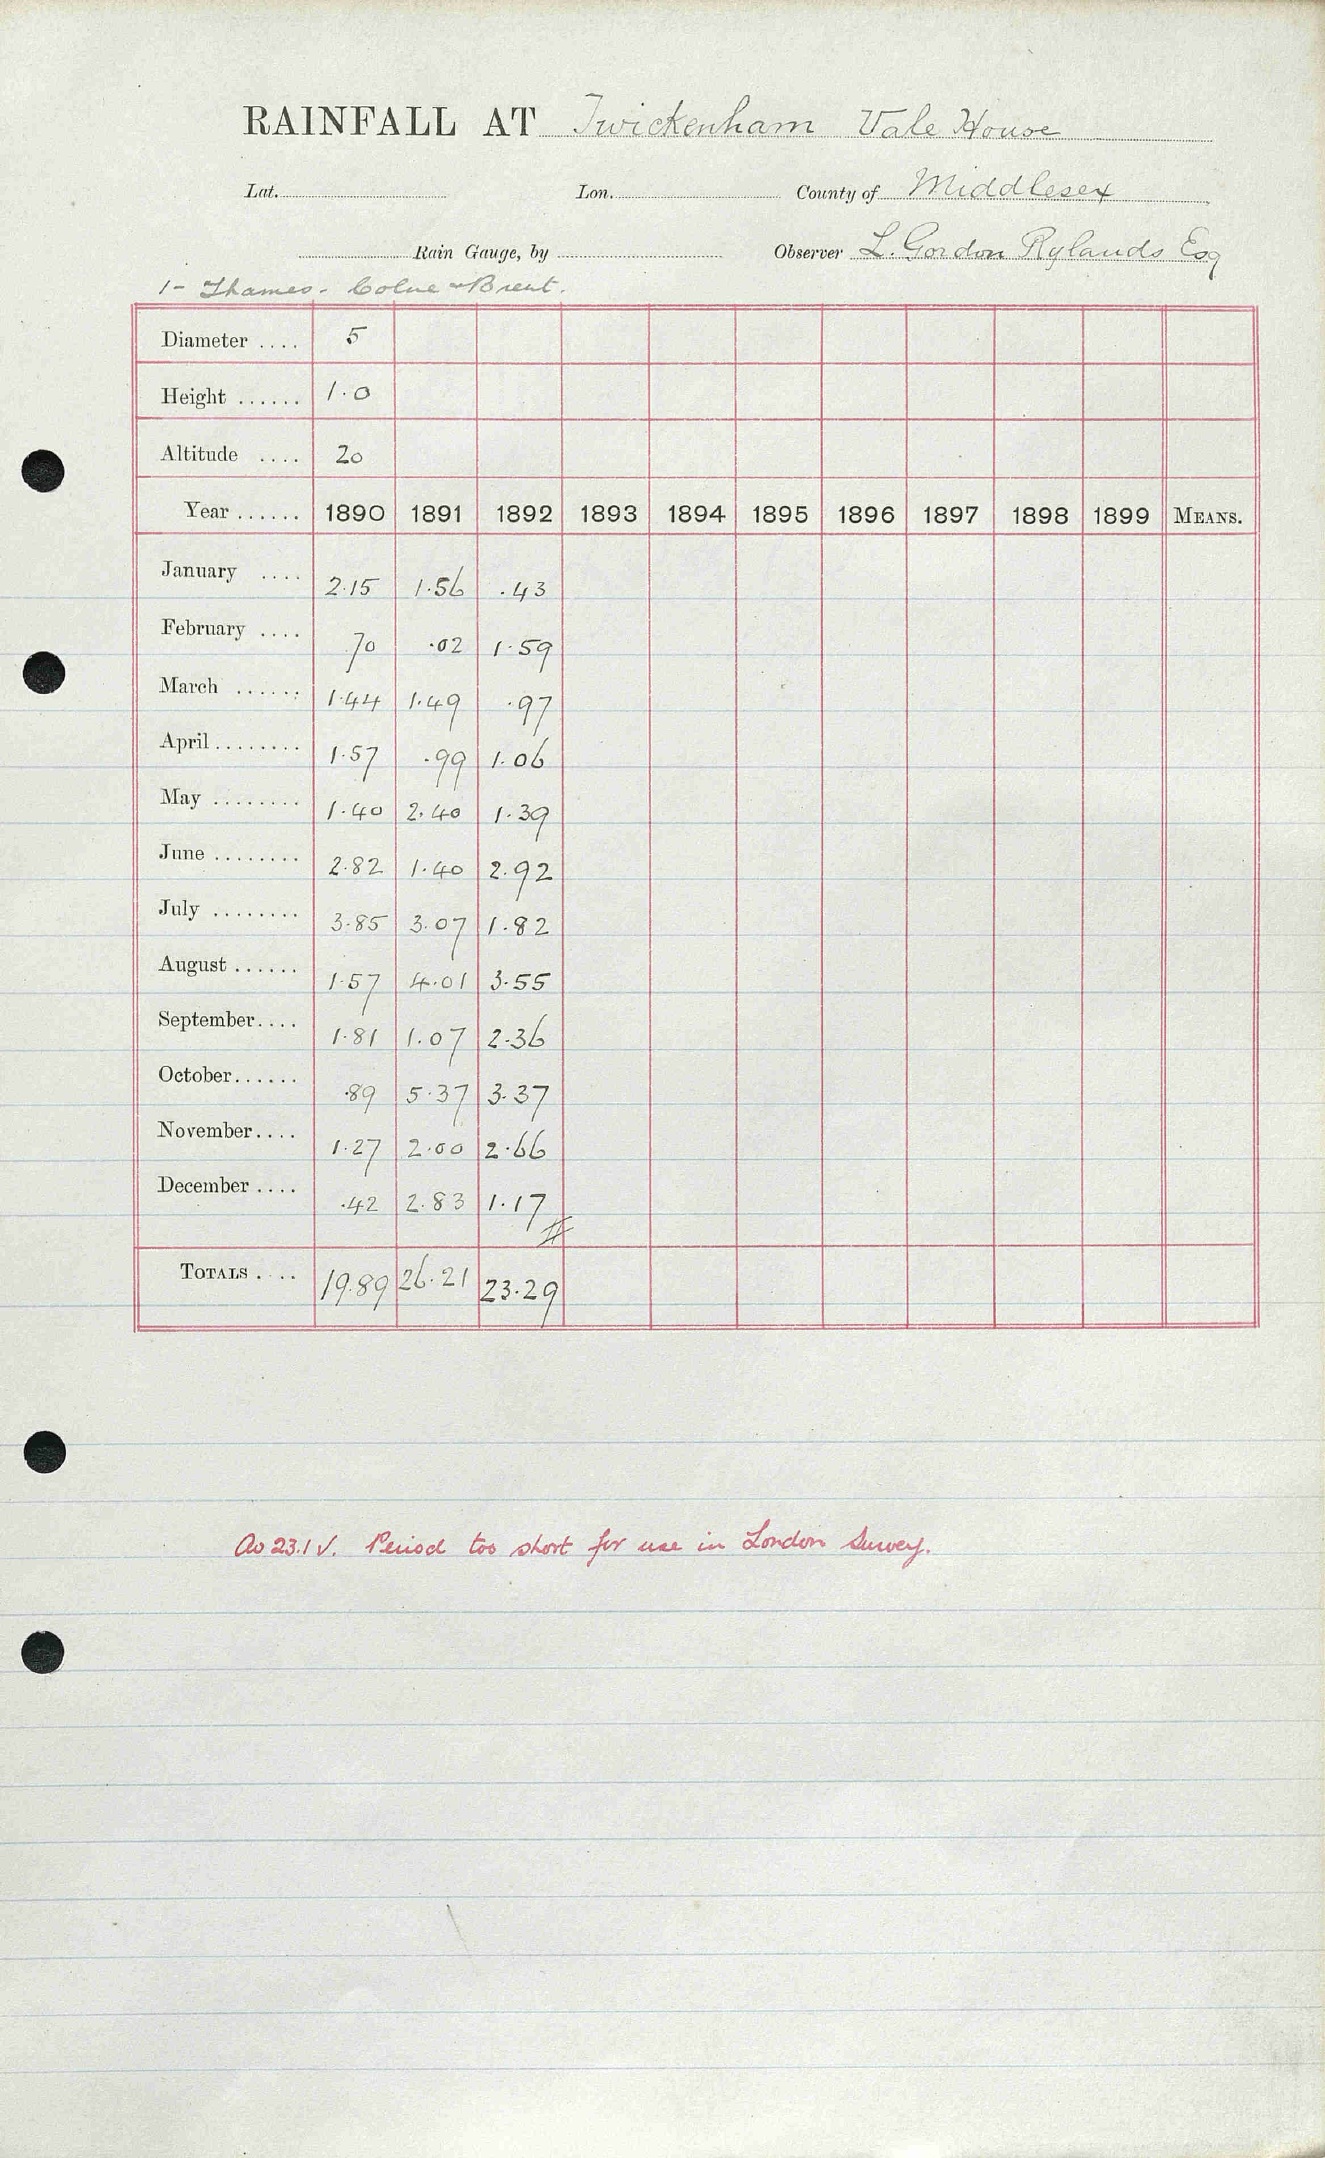 RAINFALL AT Twickenham Vale House
Lat. Lon. County of Middlesex
Rain Gauge, by Observer L. Gordon Rylands Esq
1- Thames - Colne & Brent.
Diameter .... 5
Height ...... 1.0
Altitude .... 20
Year ...... 1890 1891 1892 1893 1894 1895 1896 1897 1898 1899 MEANS.
January .... 2.15 1.56 .43
February .... .70 .02 1.59
March ...... 1.44 1.49 .97
April ........ 1.57 .99 1.06
May ........ 1.40 2.40 1.39
June ........ 2.82 1.40 2.92
July ........ 3.85 3.07 1.82
August ...... 1.57 4.01 3.55
September.... 1.81 1.07 2.36
October...... .89 5.37 3.37
November.... 1.27 2.00 2.66
December .... .42 2.83 1.17
TOTALS .... 19.89 26.21 23.29
Av 23.1 √. Period too short for use in London Survey.